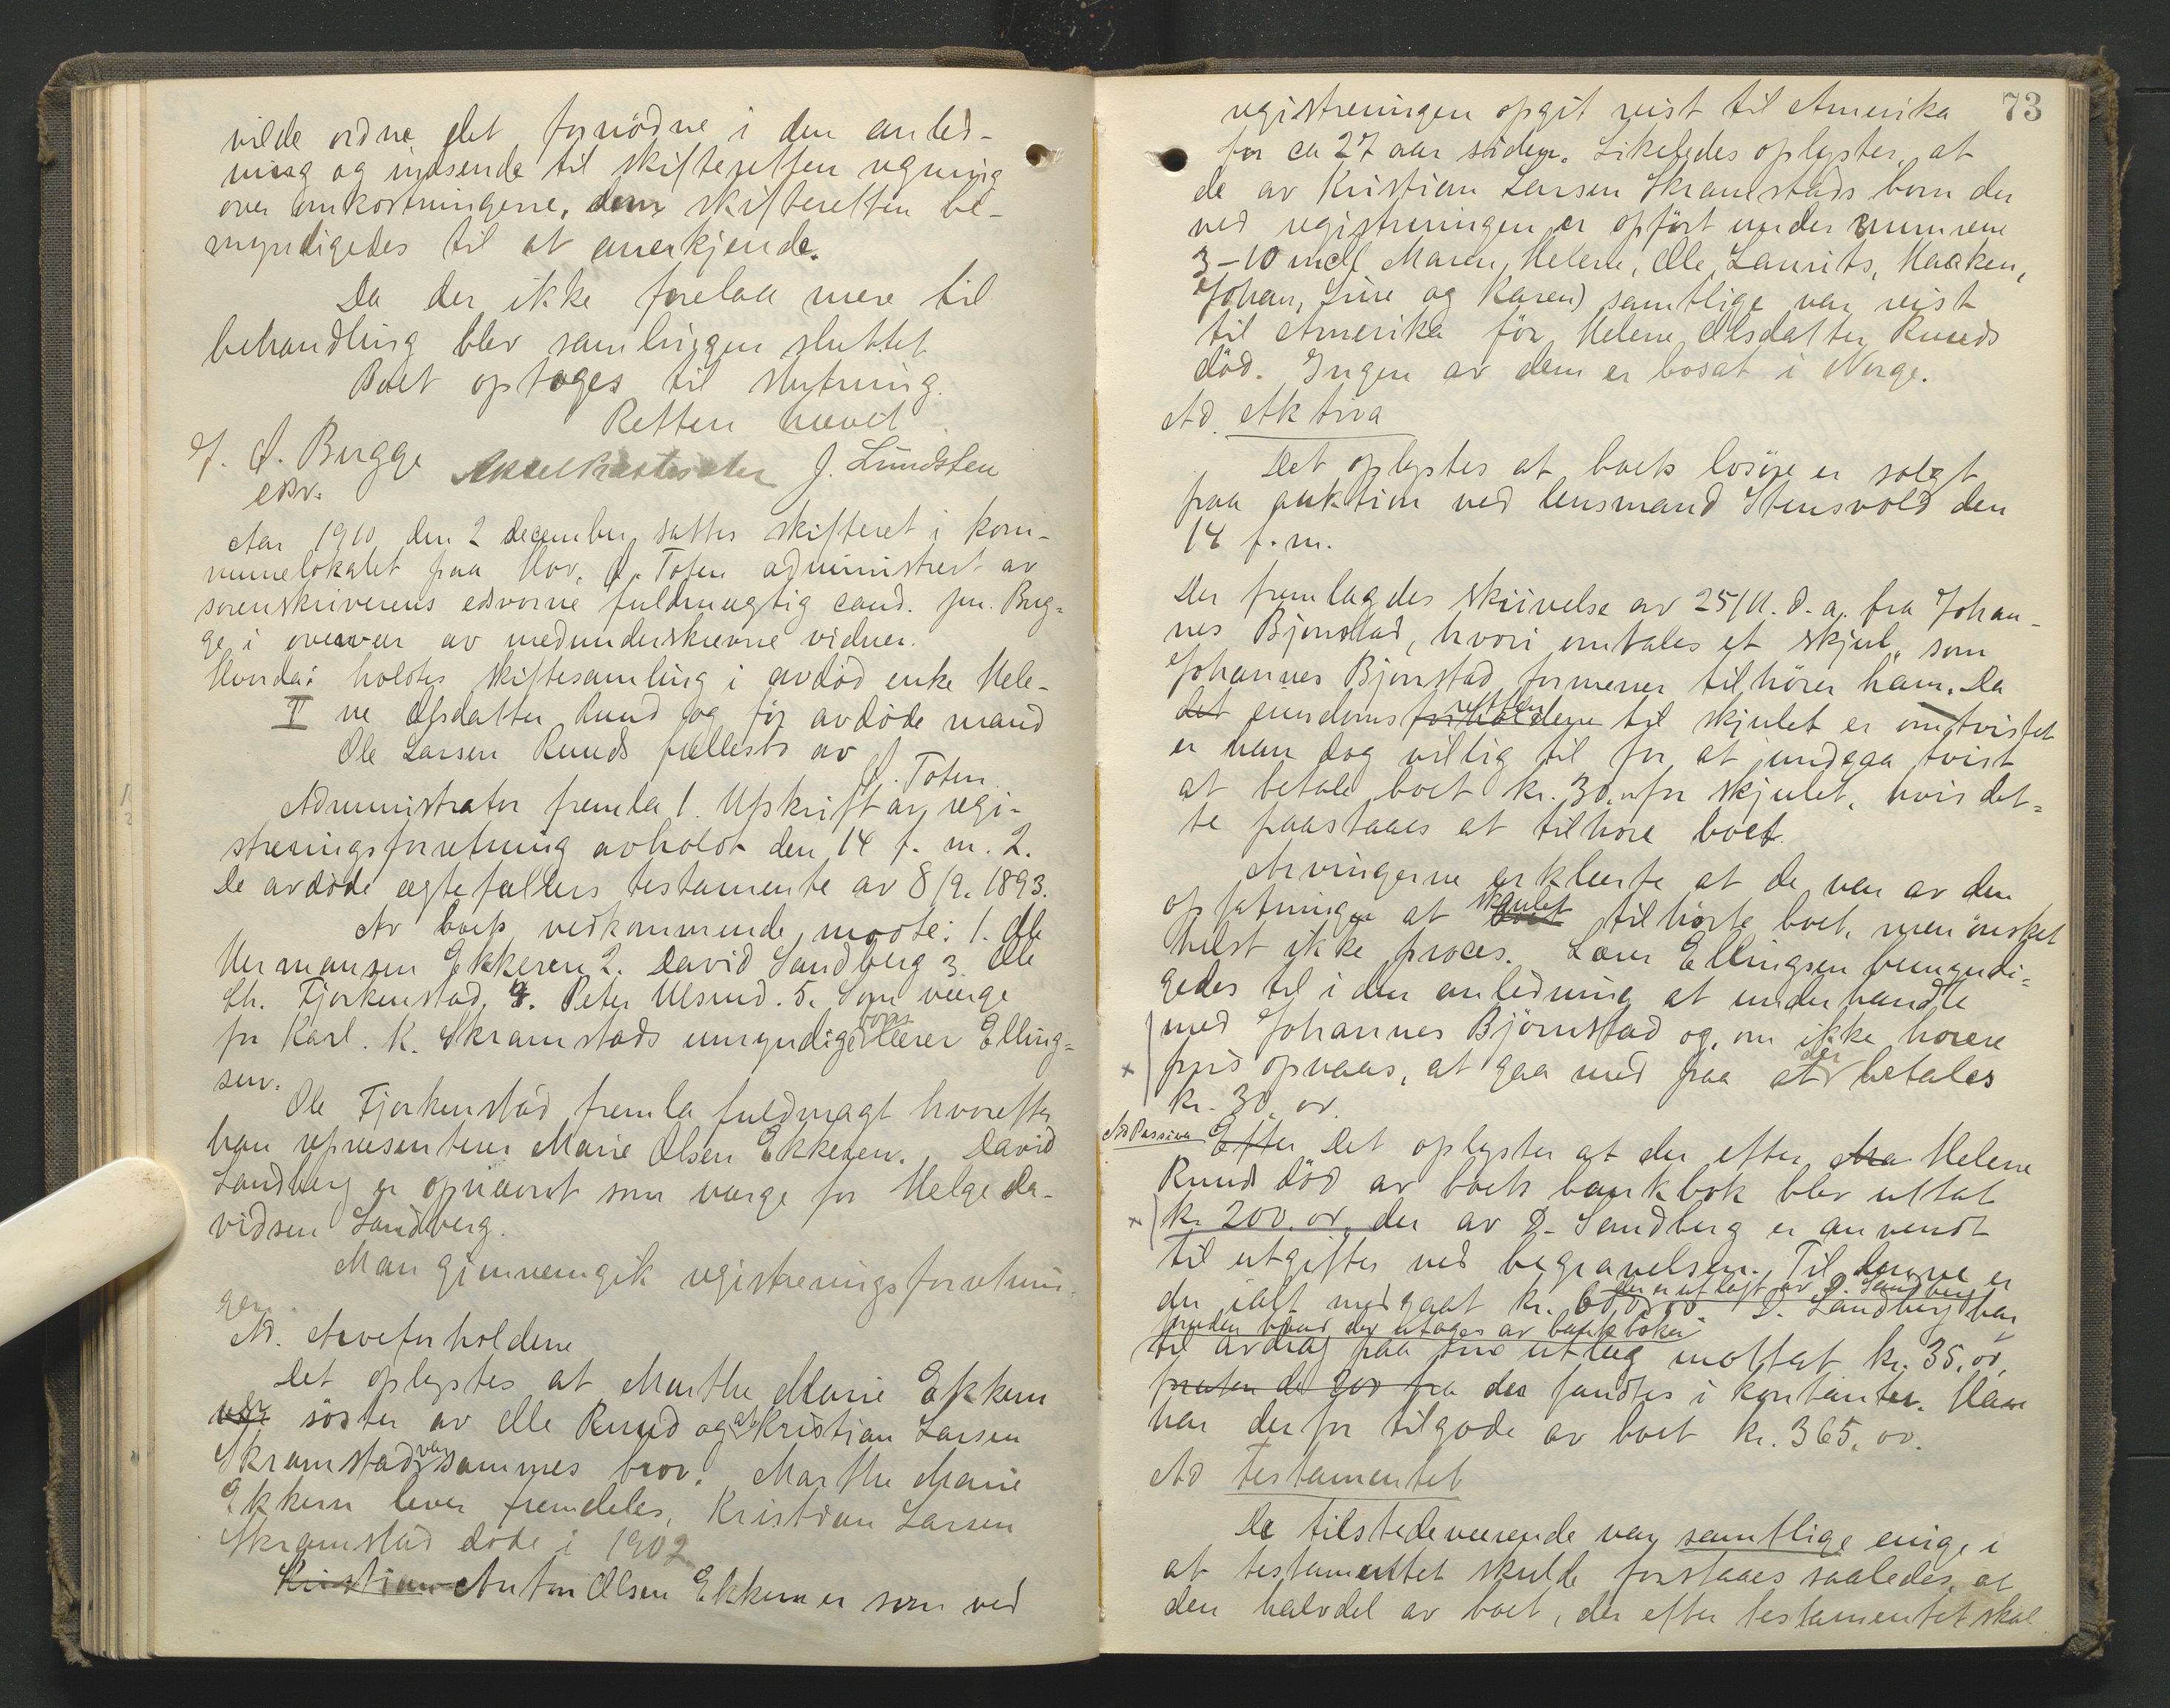 vilde ordne det fornödne i den anled-
ning og indsende til skifteretten regning
over omkostningerne, dem skifteretten be-
myndigedes til at anerkjende.
Da der ikke forelaa mere til
behandling blev samlingen sluttet
Boet optoges til slutning.
Retten hævet
J. Ø. Bugge J. Lundsten
edsv.
Aar 1910 den 2 december sattes skifteret i kom-
munelokalet paa Hov, Ø. Toten administrert av
sorenskriverens edsvorne fuldmægtig cand. jur. Bug-
ge i overvær av medunderskrevne vidner.
Hvorda: holdtes skiftesamling i avdöd enke Hele-
II ne Olsdatter Ruud og för avdöde mand
Ole Larsen Ruuds fællesbo av
Ø. Toten
Administrator fremla 1. Utskrift av regi-
streringsforretning avholdt den 14 f. m. 2.
De avdöde ægtefællers testamente av 8/9. 1893.
Av boets vedkommende mödte: 1. Ole
Hermansen Ekkeren 2. David Sandberg 3. Ole
Ch. Fjorkenstad, 4. Peter Ulsrud. 5. Som værge
for Karl. K. Skramstads umyndige born Lærer Elling-
sen.
Ole Fjorkenstad fremla fuldmagt hvorefter
han repræsenterer Marie Olsen Ekkeren. David
Sandberg er opnævnt som værge for Helge Da-
vidsen Sandberg.
Man gjennemgik registreringsforretnin-
gen
Ad. Arveforholdene
Det oplystes at Marthe Marie Ekkern
var söster av Ole Ruud og at Kristian Larsen
Skramstad var sammes bror. Marthe Marie
Ekkern lever fremdeles, Kristian Larsen
Skramstad döde i 1902
Kristian Anton Olsen Ekkern er som ved
73
registreringen opgit reist til Amerika
for ca 27 aar siden. Likeledes oplystes, at
de av Kristian Larsen Skramstads born der
ved registreringen er opfört under numrene
3-10 incl Maren, Helene, Ole, Laurits, Haaken,
Johan, Line og Karen) samtlige var reist
til Amerika för Helene Olsdatter Ruuds
död. Ingen av dem er bosat i Norge.
Ad. Aktiva
Det oplystes at boets losöre er solgt
paa auktion ved lensmand Stensvold den
14 f.m.
Der fremlagdes skrivelse av 25/11. d. a. fra Johan-
nes Bjornstad, hvori omtales et skjul, som
Johannes Bjornstad formener tilhörer ham. Da
det eiendomsforholdene retten til skjulet er omtvistet
er han dog villig til for at undgaa tvist
at betale boet kr. 30,- for skjulet, hvis det-
te paastaaes at tilhöre boet.
Arvingerne erklærte at de var av den
opfatningen at boet skjulet tilhörte boet, men önsket
helst ikke proces. Lærer Ellingsen bemyndi-
gedes til i den anledning at underhandle
med Johannes Björnstad og, om ikke hoiere
pris opnaas, at gaa med paa at der betales
kr. 30. 00.
Ad Passiva Efter Det oplystes at der efter Helene
Ruuds död av boets bankbok blev uttat
kr. 200.00, der av D. Sandberg er anvendt
til utgifter ved begravelsen. Til denne er
der ialt medgaat kr. der er utlagt av D. Sandberg D. Sandberg har
foruden hvad der utoges av bankboken
til avdrag paa sine utlæg mottat kr. 35,00,
foruten de 200 fra der fandtes i kontanter. Han
har derfor tilgode av boet kr. 365, 00.
Ad Testamentet
De tilstedeværende var samtlige enige i
at testamentet skulde forstaaes saaledes, at
den halvdel av boet, der efter testamentet skal